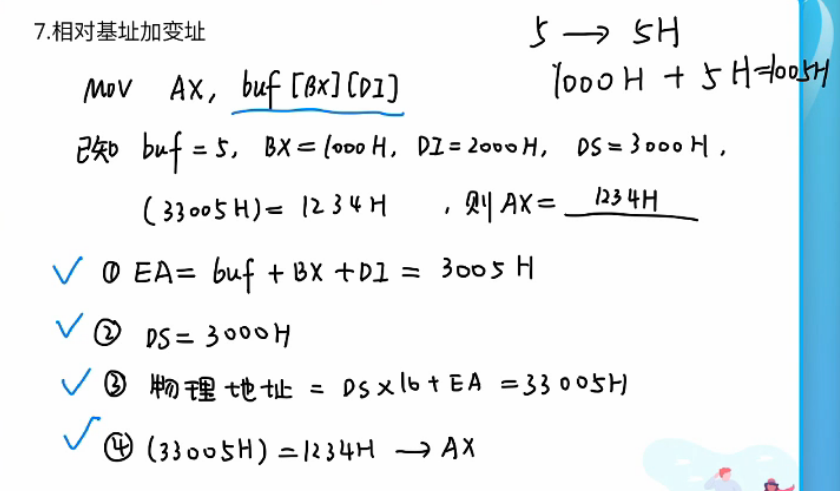 7.相对基址加变址
5 → 5H
1000H + 5H=1005H
MOV AX, buf[BX][DI]
已知 buf = 5, BX = 1000H, DI = 2000H, DS = 3000H,
(33005H) = 1234H , 则 AX = 1234H
✓ ① EA = buf + BX + DI = 3005H
✓ ② DS = 3000H
✓ ③ 物理地址 = DS×16 + EA = 33005H
✓ ④ (33005H) = 1234H → AX